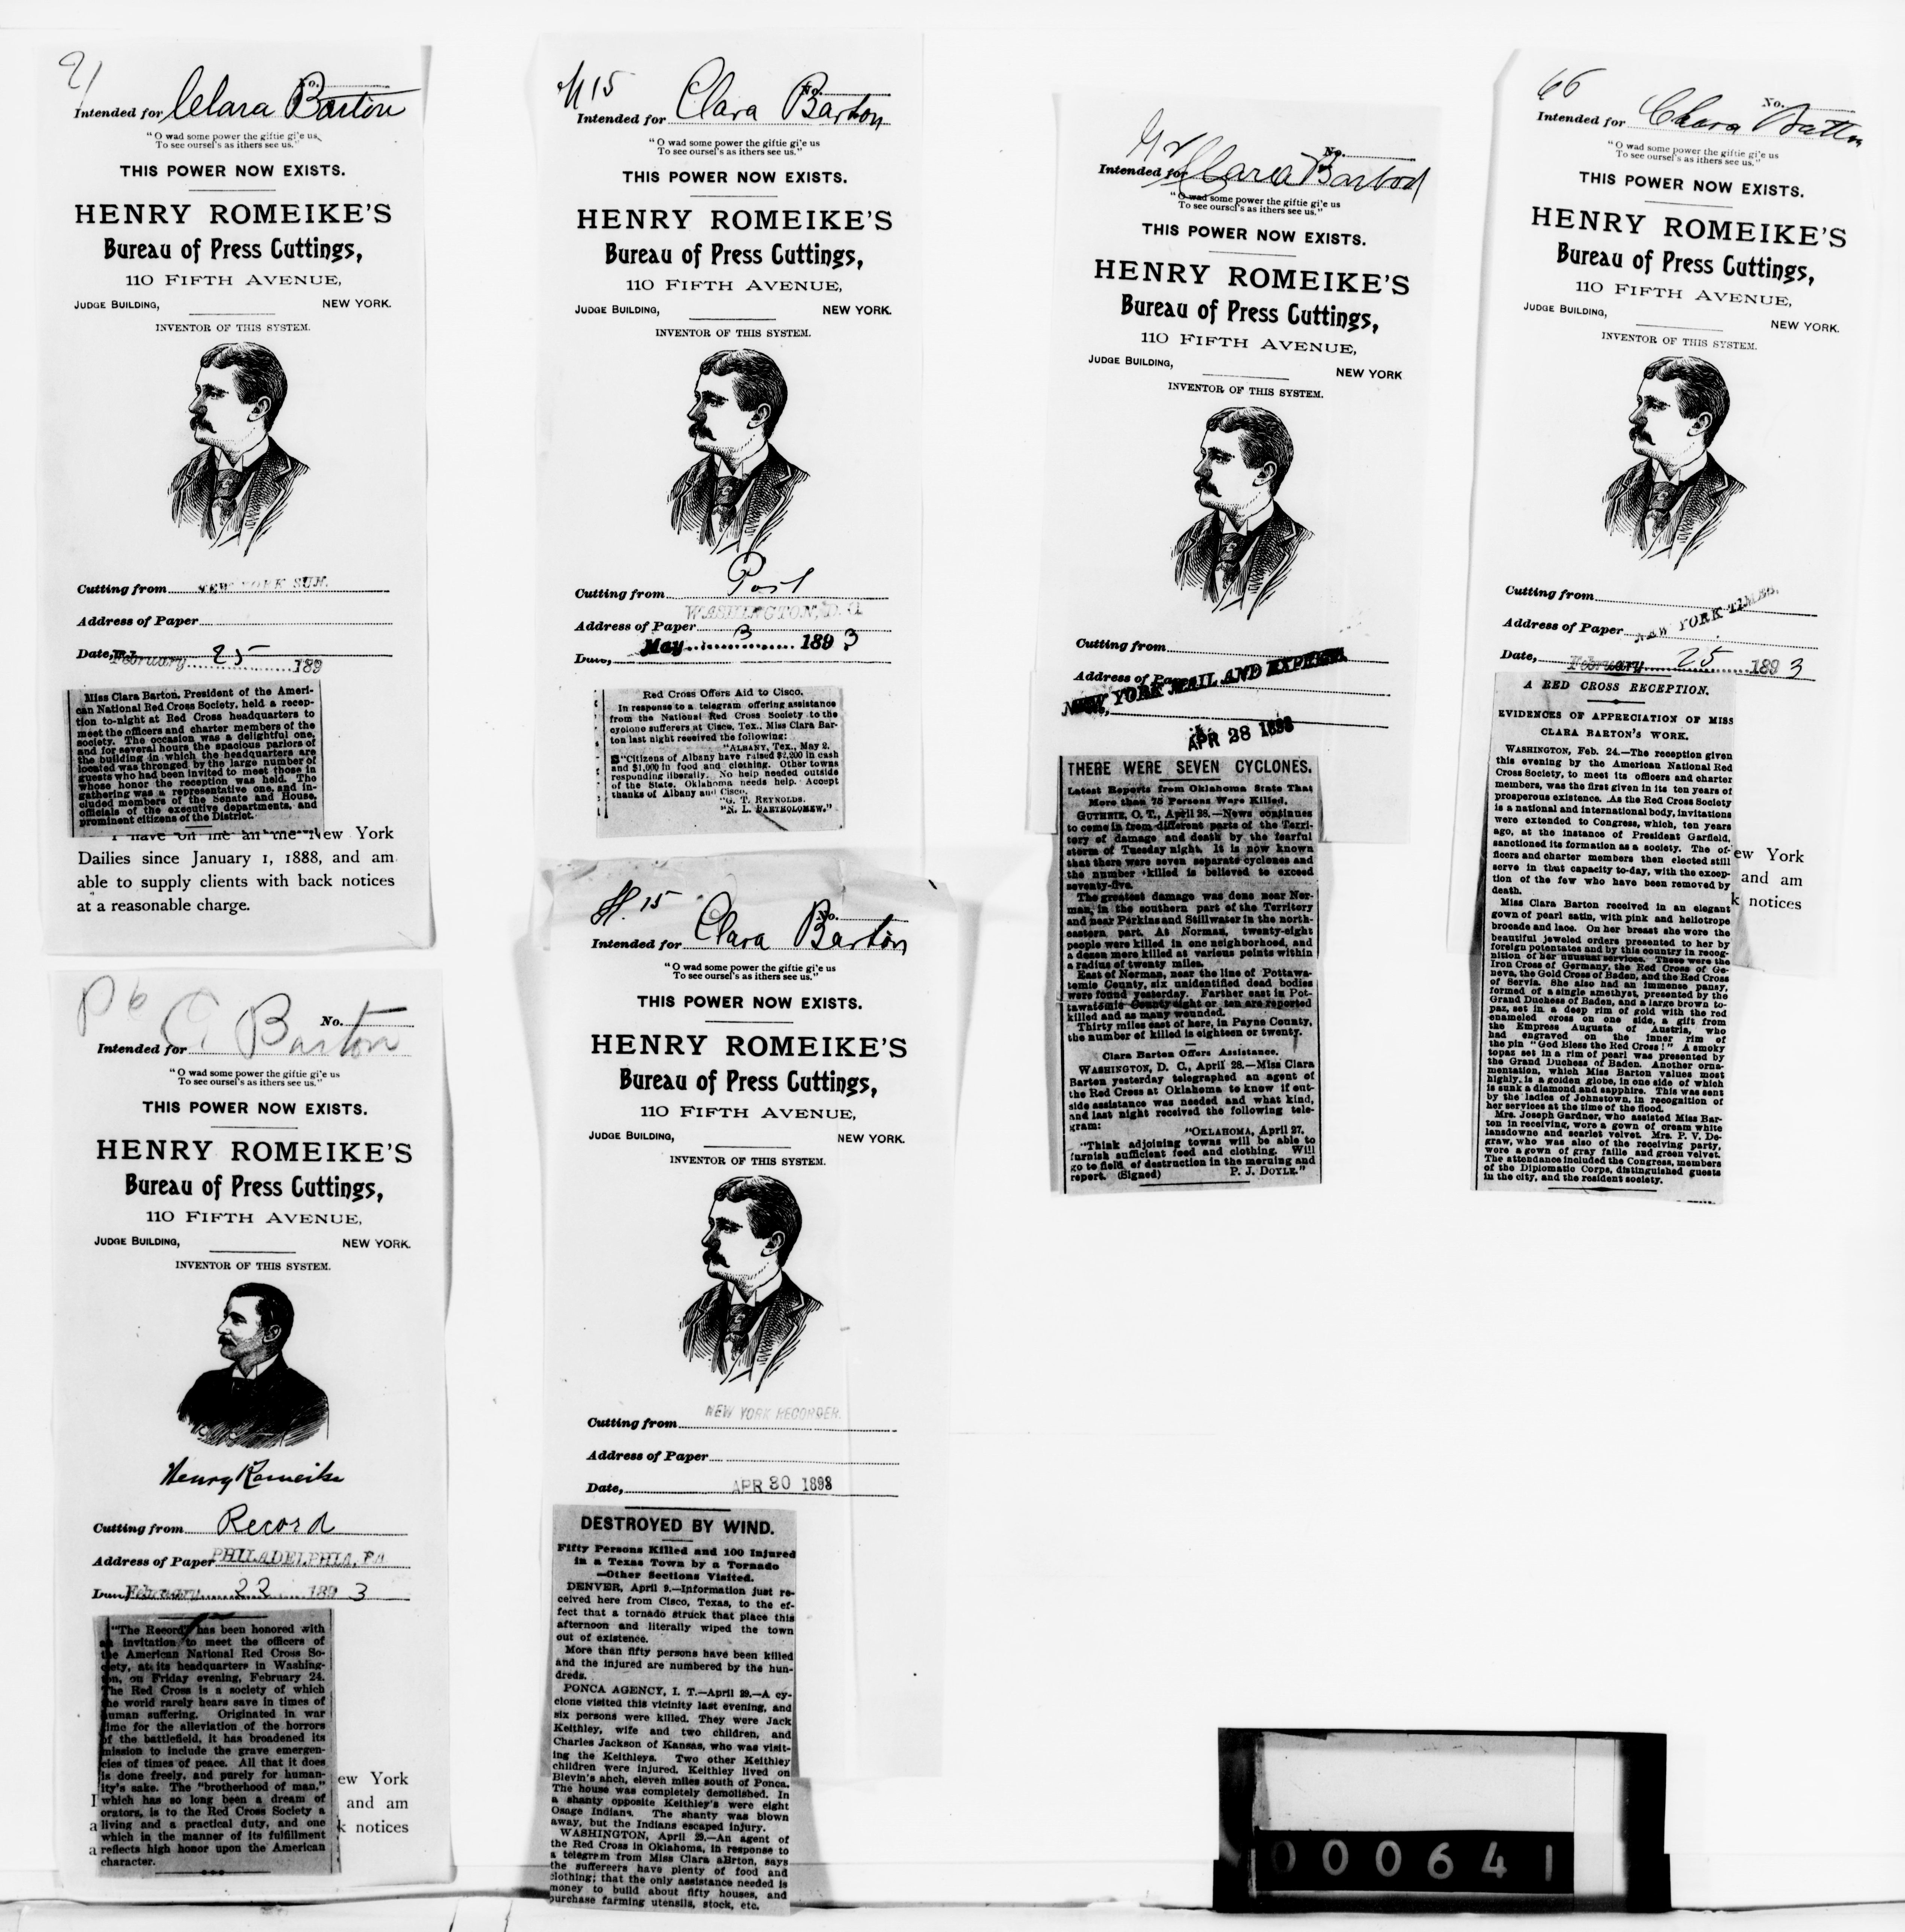 21
No.
Intended for Clara Barton
"O wad some power the giftie gi'e us
To see oursel's as ithers see us."
THIS POWER NOW EXISTS.
HENRY ROMEIKE'S
Bureau of Press Cuttings,
110 FIFTH AVENUE,
JUDGE BUILDING, NEW YORK.
INVENTOR OF THIS SYSTEM.
Cutting from NEW YORK SUN.
Address of Paper
Date, February 25 189
Miss Clara Barton, President of the Ameri-
can National Red Cross Society, held a recep-
tion to-night at Red Cross headquarters to
meet the officers and charter members of the
society. The occasion was a delightful one,
and for several hours the spacious parlors of
the building in which the headquarters are
located was thronged by the large number of
guests who had been invited to meet those in
whose honor the reception was held. The
gathering was a representative one, and in-
cluded members of the Senate and House,
officials of the executive departments, and
prominent citizens of the District.
I have on file all the New York
Dailies since January 1, 1888, and am
able to supply clients with back notices
at a reasonable charge.
P6
No.
Intended for C Barton
"O wad some power the giftie gi'e us
To see oursel's as ithers see us."
THIS POWER NOW EXISTS.
HENRY ROMEIKE'S
Bureau of Press Cuttings,
110 FIFTH AVENUE,
JUDGE BUILDING, NEW YORK.
INVENTOR OF THIS SYSTEM.
Henry Romeike
Cutting from Record
Address of Paper PHILADELPHIA, PA
Date, February 22 1893
"The Record" has been honored with
an invitation to meet the officers of
the American National Red Cross So-
ciety, at its headquarters in Washing-
ton, on Friday evening, February 24.
The Red Cross is a society of which
the world rarely hears save in times of
human suffering. Originated in war
time for the alleviation of the horrors
of the battlefield, it has broadened its
mission to include the grave emergen-
cies of times of peace. All that it does
is done freely, and purely for human-
ity's sake. The "brotherhood of man,"
which has so long been a dream of
orators, is to the Red Cross Society a
living and a practical duty, and one
which in the manner of its fulfillment
reflects high honor upon the American
character.
ew York
I and am
a k notices
a
H 15
No.
Intended for Clara Barton
"O wad some power the giftie gi'e us
To see oursel's as ithers see us."
THIS POWER NOW EXISTS.
HENRY ROMEIKE'S
Bureau of Press Cuttings,
110 FIFTH AVENUE,
JUDGE BUILDING, NEW YORK.
INVENTOR OF THIS SYSTEM.
Cutting from Post
Address of Paper WASHINGTON, D.C.
Date, May 3 1893
Red Cross Offers Aid to Cisco.
In response to a telegram offering assistance
from the National Red Cross Society to the
cyclone sufferers at Cisco, Tex., Miss Clara Bar-
ton last night received the following:
"ALBANY, Tex., May 2.
"Citizens of Albany have raised $2,200 in cash
and $1,000 in food and clothing. Other towns
responding liberally. No help needed outside
of the State. Oklahoma needs help. Accept
thanks of Albany and Cisco.
"G. T. REYNOLDS.
"N. L. BARTHOLOMEW."
H. 15
No.
Intended for Clara Barton
"O wad some power the giftie gi'e us
To see oursel's as ithers see us."
THIS POWER NOW EXISTS.
HENRY ROMEIKE'S
Bureau of Press Cuttings,
110 FIFTH AVENUE,
JUDGE BUILDING, NEW YORK.
INVENTOR OF THIS SYSTEM.
Cutting from NEW YORK RECORDER.
Address of Paper
Date, APR 30 1893
DESTROYED BY WIND.
Fifty Persons Killed and 100 Injured
in a Texas Town by a Tornado
—Other Sections Visited.
DENVER, April 9.—Information just re-
ceived here from Cisco, Texas, to the ef-
fect that a tornado struck that place this
afternoon and literally wiped the town
out of existence.
More than fifty persons have been killed
and the injured are numbered by the hun-
dreds.
PONCA AGENCY, I. T.—April 29.—A cy-
clone visited this vicinity last evening, and
six persons were killed. They were Jack
Keithley, wife and two children, and
Charles Jackson of Kansas, who was visit-
ing the Keithleys. Two other Keithley
children were injured. Keithley lived on
Blevin's anch, eleven miles south of Ponca.
The house was completely demolished. In
a shanty opposite Keithley's were eight
Osage Indians. The shanty was blown
away, but the Indians escaped injury.
WASHINGTON, April 29.—An agent of
the Red Cross in Oklahoma, in response to
a telegrem from Miss Clara aBrton, says
the suffereers have plenty of food and
clothing; that the only assistance needed is
money to build about fifty houses, and
purchase farming utensils, stock, etc.
No.
Intended for Clara Barton
"O wad some power the giftie gi'e us
To see oursel's as ithers see us."
THIS POWER NOW EXISTS.
HENRY ROMEIKE'S
Bureau of Press Cuttings,
110 FIFTH AVENUE,
JUDGE BUILDING, NEW YORK
INVENTOR OF THIS SYSTEM.
Cutting from
Address of Paper
NEW YORK MAIL AND EXPRESS
APR 28 1893
THERE WERE SEVEN CYCLONES.
Latest Reports from Oklahoma State That
More than 75 Persons Were Killed.
GUTHRIE, O. T., April 28.—News continues
to come in from different parts of the Terri-
tory of damage and death by the fearful
storm of Tuesday night. It is now known
that there were seven separate cyclones and
the number killed is believed to exceed
seventy-five.
The greatest damage was done near Nor-
man, in the southern part of the Territory
and near Perkins and Stillwater in the north-
eastern part. At Norman, twenty-eight
people were killed in one neighborhood, and
a dozen more killed at various points within
a radius of twenty miles.
East of Norman, near the line of Pottawa-
temie County, six unidentified dead bodies
were found yesterday. Farther east in Pot-
tawatomie County eight or ten are reported
killed and as many wounded.
Thirty miles east of here, in Payne County,
the number of killed is eighteen or twenty.
Clara Barton Offers Assistance.
WASHINGTON, D. C., April 28.—Miss Clara
Barton yesterday telegraphed an agent of
the Red Cross at Oklahoma to know if out-
side assistance was needed and what kind,
and last night received the following tele-
gram:
"OKLAHOMA, April 27.
"Think adjoining towns will be able to
furnish sufficient feed and clothing. Will
go to field of destruction in the morning and
report. (Signed) P. J. DOYLE."
66
No.
Intended for Clara Barton
"O wad some power the giftie gi'e us
To see oursel's as ithers see us."
THIS POWER NOW EXISTS.
HENRY ROMEIKE'S
Bureau of Press Cuttings,
110 FIFTH AVENUE,
JUDGE BUILDING, NEW YORK.
INVENTOR OF THIS SYSTEM.
Cutting from
Address of Paper NEW YORK TIMES.
Date, February 25 1893
A RED CROSS RECEPTION.
EVIDENCES OF APPRECIATION OF MISS
CLARA BARTON'S WORK.
WASHINGTON, Feb. 24.—The reception given
this evening by the American National Red
Cross Society, to meet its officers and charter
members, was the first given in its ten years of
prosperous existence. As the Red Cross Society
is a national and international body, invitations
were extended to Congress, which, ten years
ago, at the instance of President Garfield,
sanctioned its formation as a society. The of-
ficers and charter members then elected still
serve in that capacity to-day, with the excep-
tion of the few who have been removed by
death.
Miss Clara Barton received in an elegant
gown of pearl satin, with pink and heliotrope
brocade and lace. On her breast she wore the
beautiful jeweled orders presented to her by
foreign potentates and by this country in recog-
nition of her unusual services. These were the
Iron Cross of Germany, the Red Cross of Ge-
neva, the Gold Cross of Baden, and the Red Cross
of Servia. She also had an immense pansy,
formed of a single amethyst, presented by the
Grand Duchess of Baden, and a large brown to-
paz, set in a deep rim of gold with the red
enameled cross on one side, a gift from
the Empress Augusta of Austria, who
had engraved on the inner rim of
the pin "God Bless the Red Cross!" A smoky
topaz set in a rim of pearl was presented by
the Grand Duchess of Baden. Another orna-
mentation, which Miss Barton values most
highly, is a golden globe, in one side of which
is sunk a diamond and sapphire. This was sent
by the ladies of Johnstown, in recognition of
her services at the time of the flood.
Mrs. Joseph Gardner, who assisted Miss Bar-
ton in receiving, wore a gown of cream white
lansdowne and scarlet velvet. Mrs. P. V. De-
graw, who was also of the receiving party,
wore a gown of gray faille and green velvet.
The attendance included the Congress, members
of the Diplomatic Corps, distinguished guests
in the city, and the resident society.
ew York
and am
k notices
000641